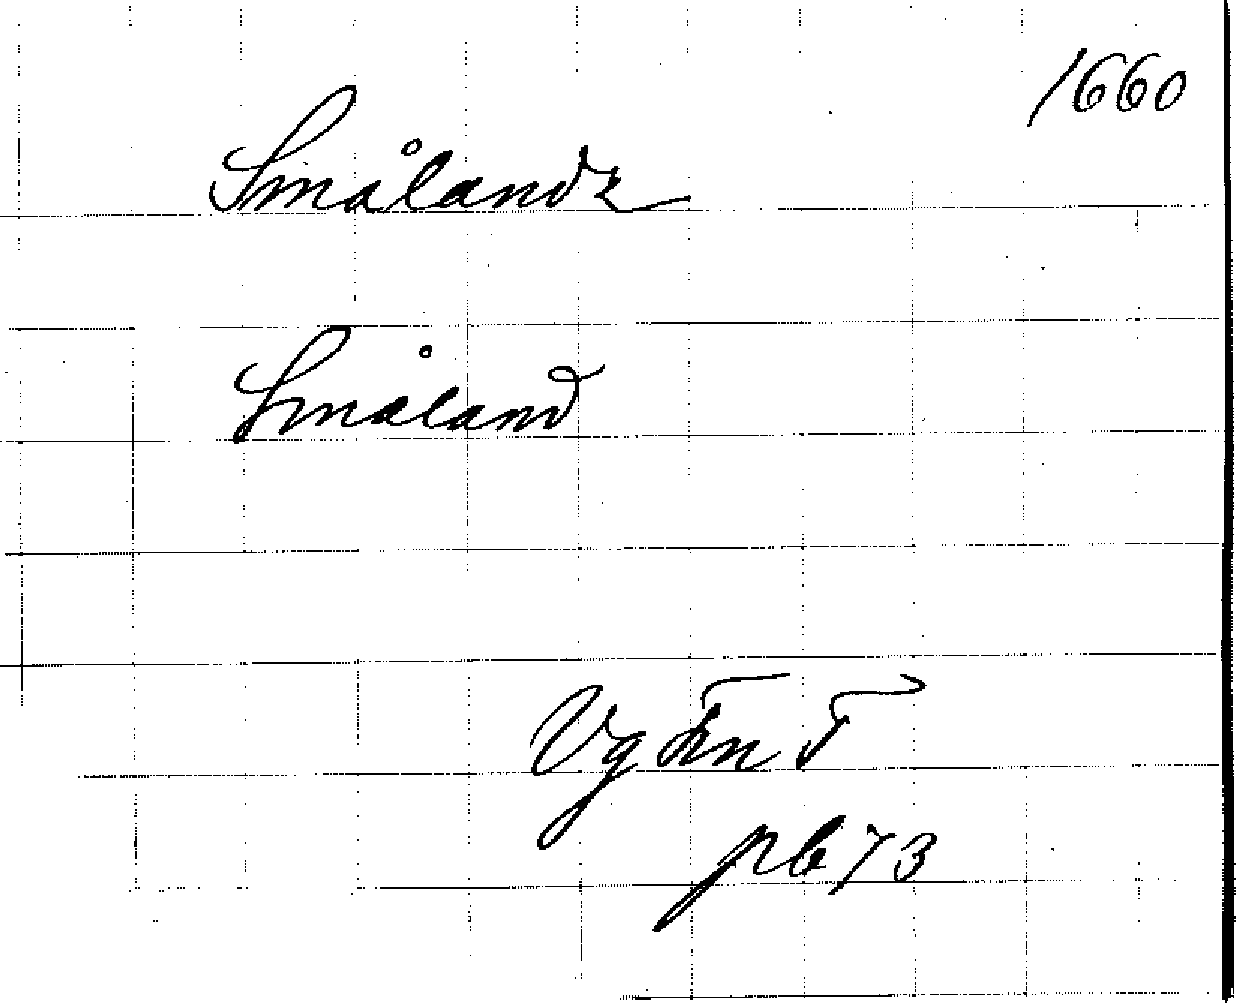 1660
Smålandz
Småland
Vg Fn T
pb 73